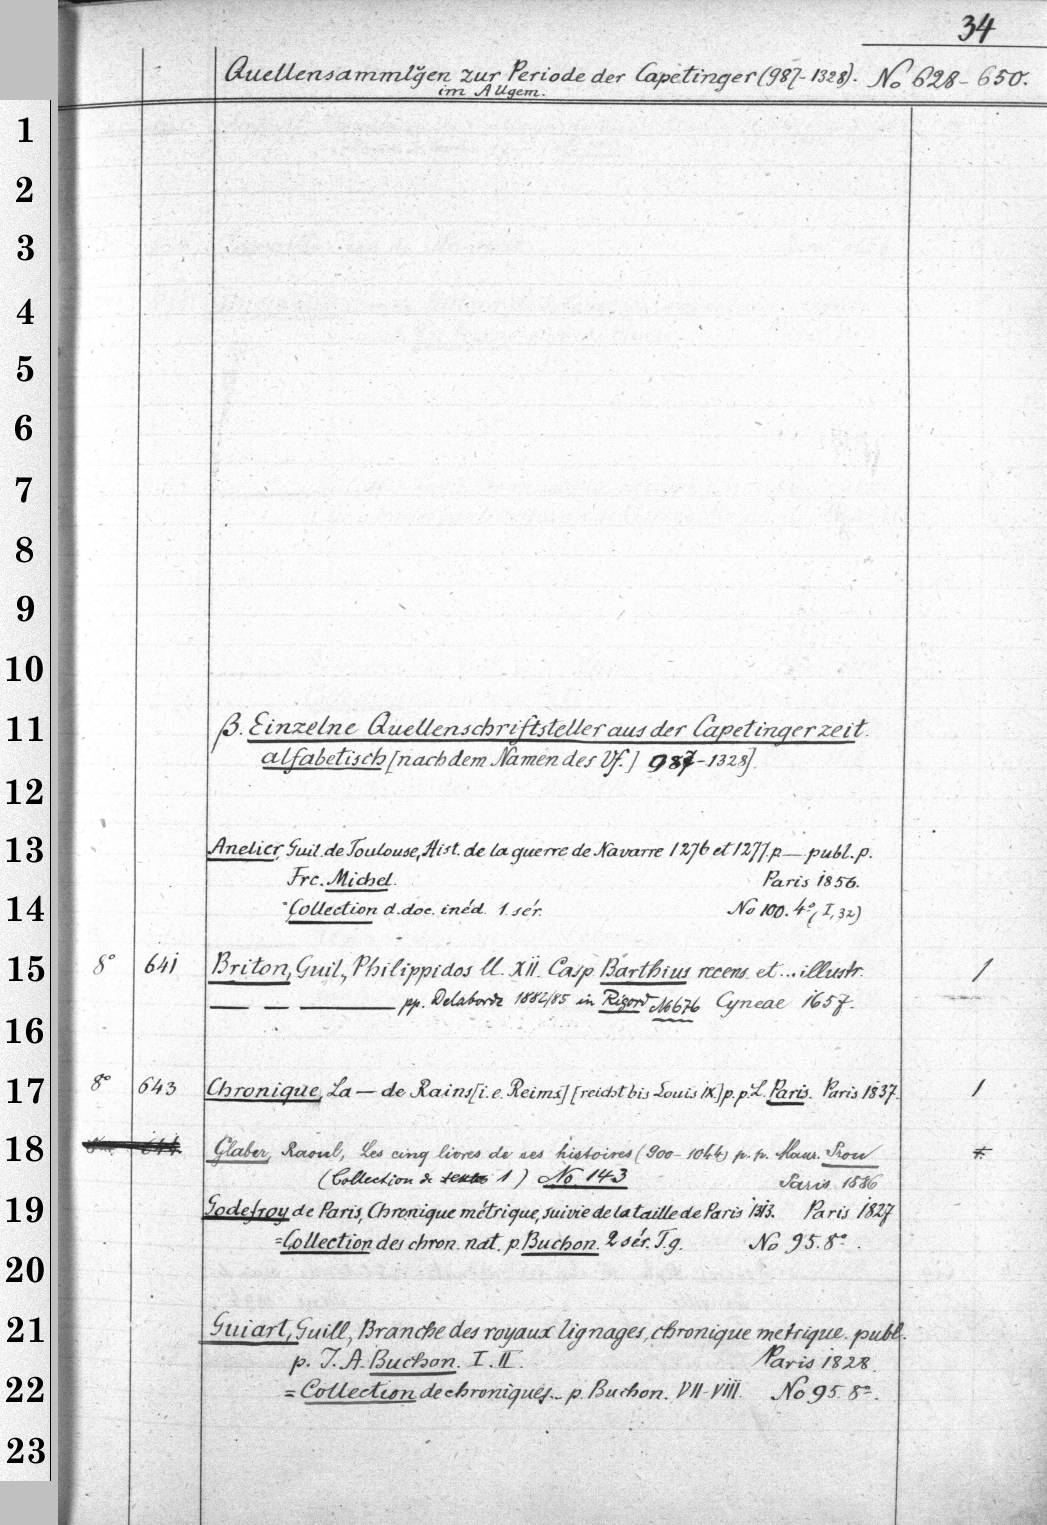 34
Quellensammlgen zur Periode der Capetinger (987-1328). No 628-650.
im Allgem.
1
2
3
4
5
6
7
8
9
10
11 β. Einzelne Quellenschriftsteller aus der Capetingerzeit.
alfabetisch [nach dem Namen des Vf.] 987-1328]
12
13 Anelier, Guil. de Toulouse, Hist. de la guerre de Navarre 1276 et 1277. p — publ. p.
Frc. Michel. Paris 1856.
14 Collection d. doc. inéd. 1. sér. No 100. 4° (I, 32)
15 8° 641 Briton, Guil., Philippidos ll. XII. Casp. Barthius recens. et ... illustr. 1
— — — pp. Delaborde 1882/85 in Rigord No 676 Cyneae 1657.
16
17 8° 643 Chronique, La — de Rains [i. e. Reims] [reicht bis Louis IX.] p. p. L. Paris. Paris 1837. 1
18 644 Glaber, Raoul, Les cinq livres de ses histoires (900-1044) p. p. Maur. Prou
(Collection de textes 1) No 143 Paris 1886
19 Godefroy de Paris, Chronique métrique, suivie de la taille de Paris 1313. Paris 1827
=Collection des chron. nat. p. Buchon. 2 sér. T. 9. No 95. 8°.
20
21 Guiart, Guill, Branche des royaux lignages, chronique metrique. publ.
p. J. A. Buchon. I. II. Paris 1828.
22 = Collection de chroniques.. p. Buchon. VII-VIII. No 95. 8°.
23